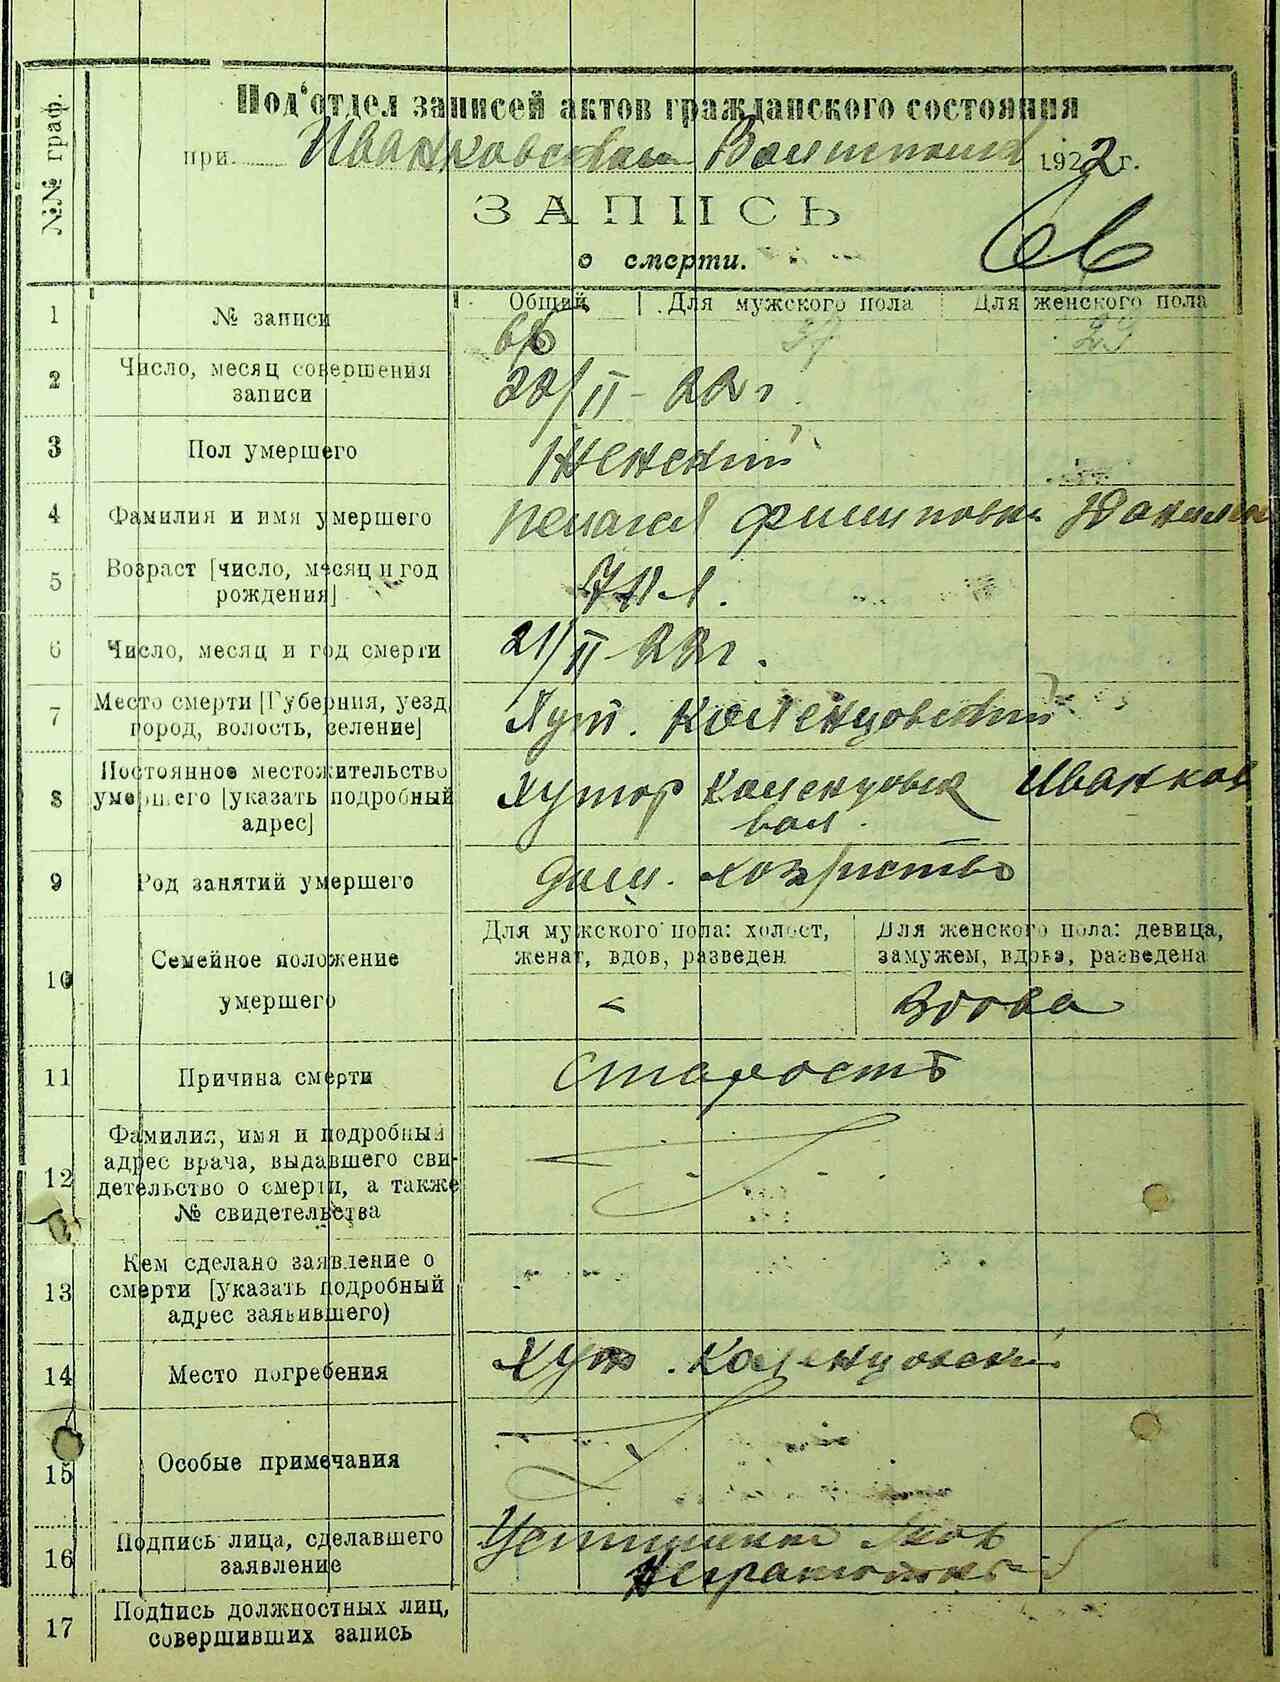 Под'отдел записей актов гражданского состояния
при Иванковской Волисполк 1922 г.
ЗАПИСЬ
о смерти.
№№ граф.
Общий Для мужского пола Для женского пола
1 № записи 66 29
2 Число, месяц совершения
записи
/II - 22 г
3 Пол умершего Женский
4 Фамилия и имя умершего Пелагея Филиповна
5 Возраст [число, месяц и год
рождения]
л.
6 Число, месяц и год смерти 21/II 22 г.
7 Место смерти [Губерния, уезд,
город, волость, селение]
Хут. Каленцовский
8 Постоянное местожительство
умершего [указать подробный
адрес]
Хутор Каленцовск Иванков
вол.
9 Род занятий умершего Дом. хозяиство
10 Семейное положение
умершего
Для мужского пола: холост,
женат, вдов, разведен
Для женского пола: девица,
замужем, вдова, разведена
Вдова
11 Причина смерти Старость
12 Фамилия, имя и подробный
адрес врача, выдавшего сви-
детельство о смерти, а также
№ свидетельства
13 Кем сделано заявление о
смерти [указать подробный
адрес заявившего)
14 Место погребения Хут. Каленцовский
15 Особые примечания
16 Подпись лица, сделавшего
заявление
Яков
Неграмотный
17 Подпись должностных лиц,
совершивших запись